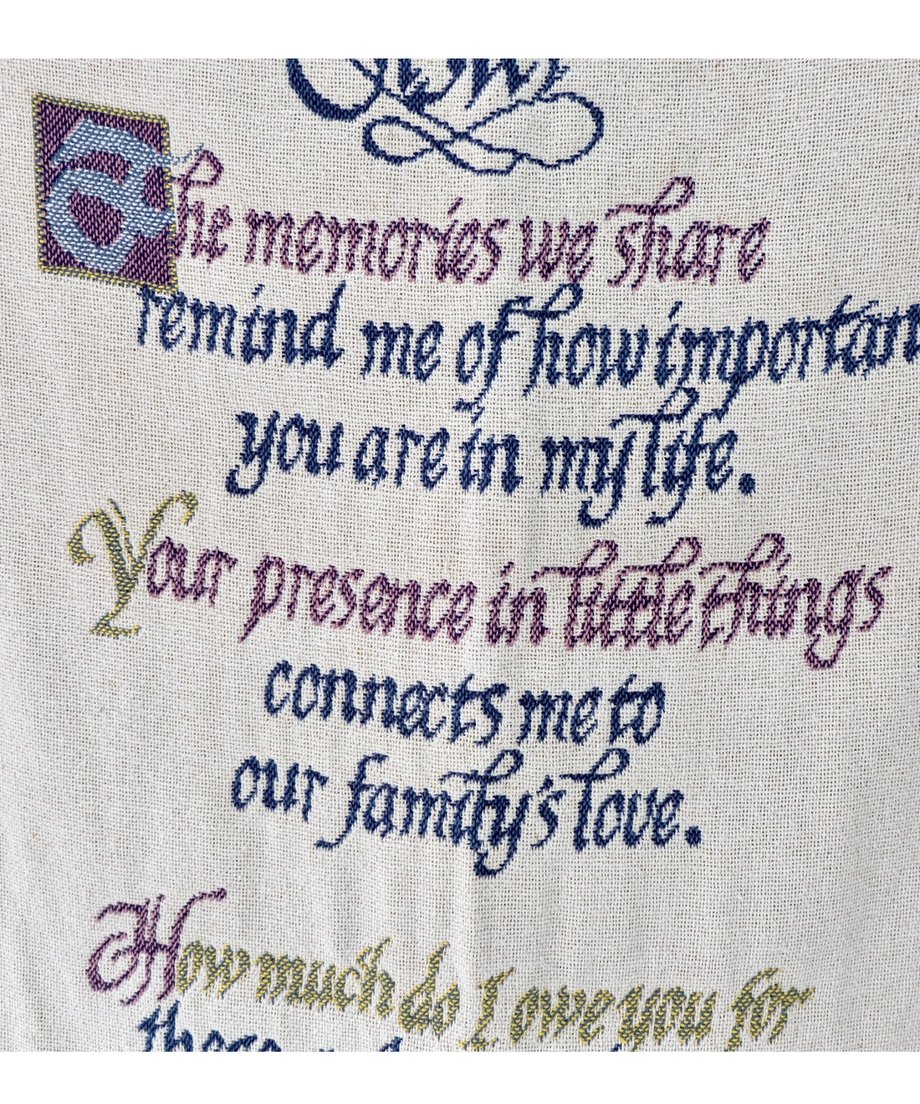 The memories we share
remind me of how importan
you are in my life.
Your presence in little things
connects me to
our family's love.
How much do I owe you for